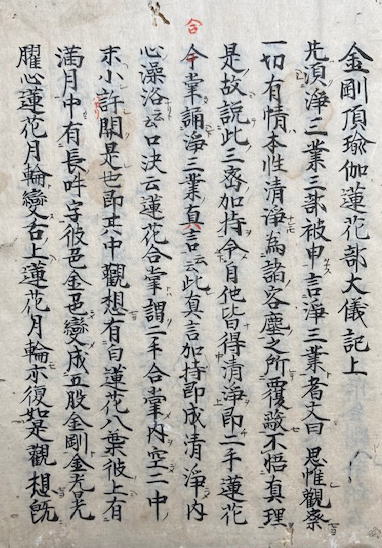 金剛頂瑜伽蓮花部大儀記上
先須淨三業三部被甲言淨三業者文曰 思惟觀察
一切有情本性清淨為諸客塵之所覆蔽不悟真理
是故説此三密加持令自他皆得清淨即二手蓮花
合掌誦淨三業真言云此真言加持即成清淨内
心澡浴云口决云蓮花合掌謂二手合掌内空二中
末小許開是也即其中觀想有白蓮花八葉彼上有
滿月中有長吽字彼色金色變成五股金剛金光晃
曜心蓮花月輪變舌上蓮花月輪亦復如是觀想既